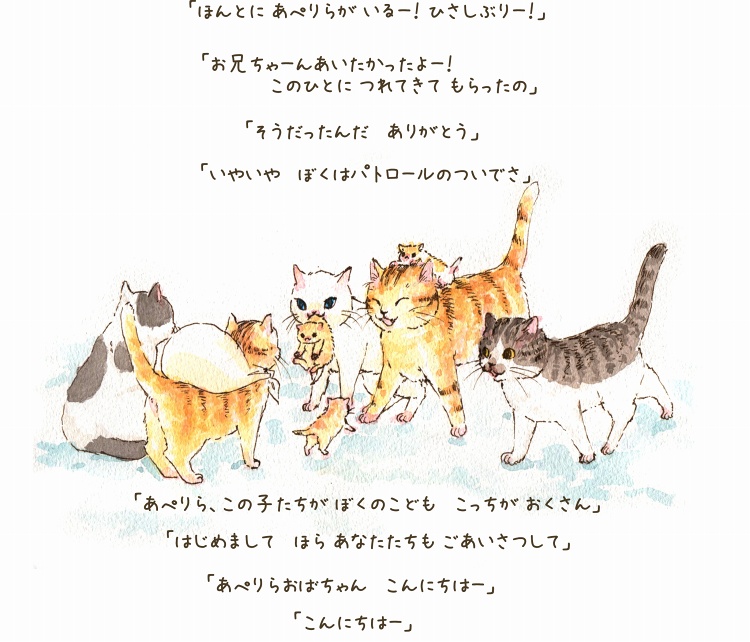 「ほんとに あぺりらが いるー! ひさしぶりー!」
「お兄ちゃーんあいたかったよー!
このひとに つれてきて もらったの」
「そうだったんだ　ありがとう」
「いやいや　ぼくはパトロールのついでさ」
「あぺりら、この子たちが ぼくのこども　こっちが おくさん」
「はじめまして　ほら あなたたちも ごあいさつして」
「あぺりらおばちゃん　こんにちはー」
「こんにちはー」